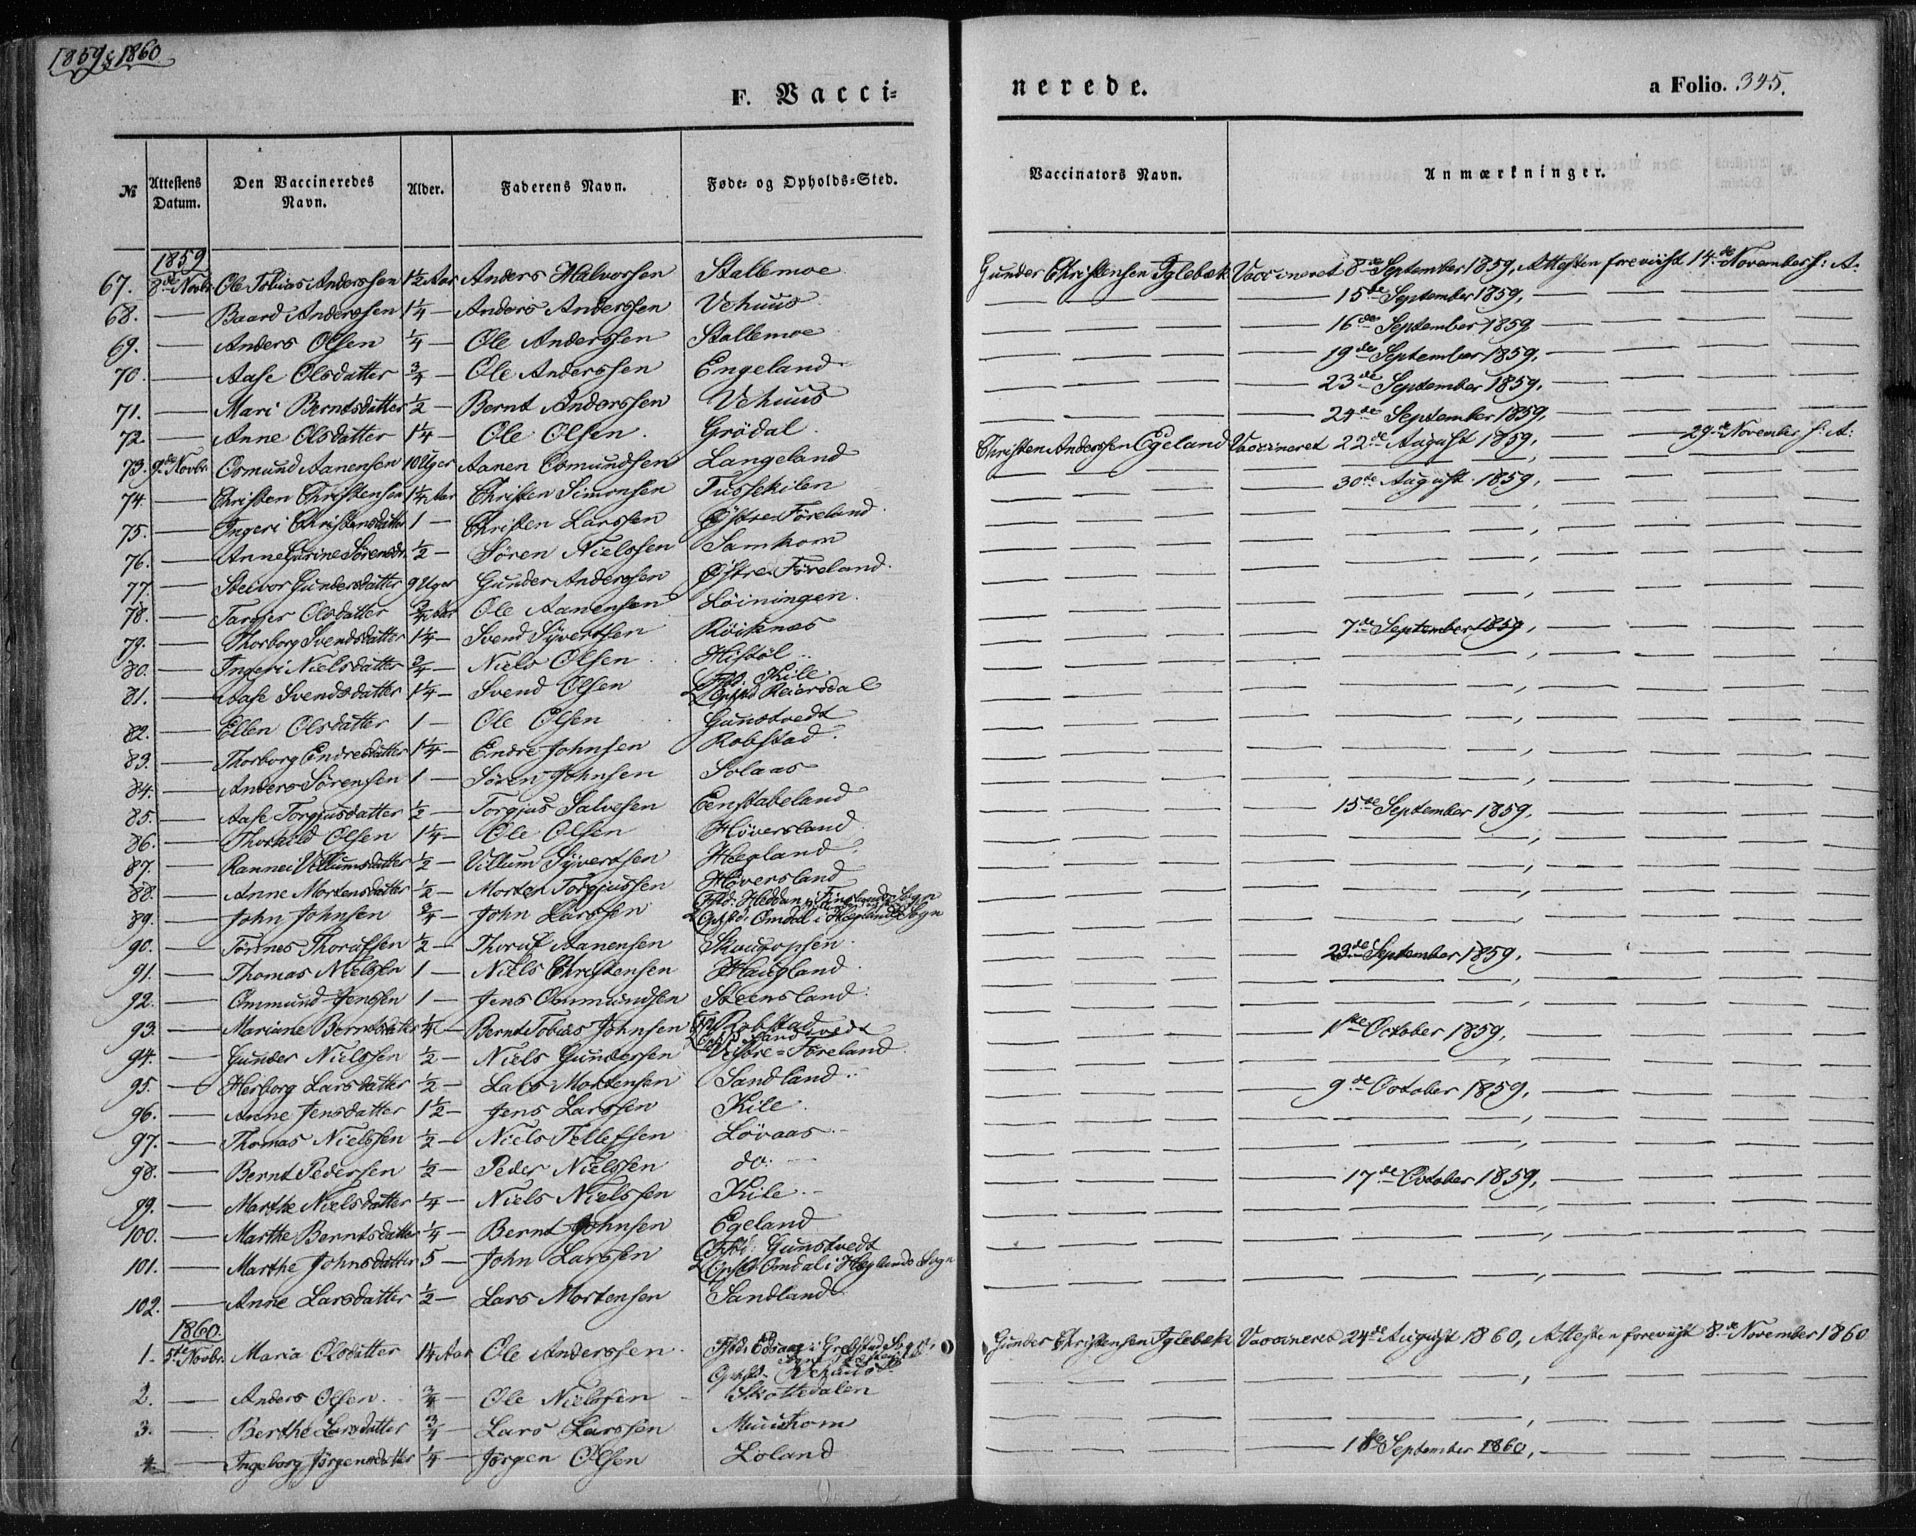 1859 & 1860
F. Vacci-
nerede.
a Folio. 345.
№ Attestens Datum. Den Vaccineredes Navn. Alder. Faderens Navn. Føde- og Opholds-Sted. Vaccinators Navn. Anmærkninger.
1859
67. 8de Novbr Ole Tobias Anderssen 1½ Aar Anders Halvorsen Stallemoe Gunder Christensen Iglebæk Vaccineret 8de September 1859, Attesten foreviist 14de November s: A.
68. — Baard Anderssen 1¼ — Anders Anderssen Vehuus — 15de September 1859, —
69. — Anders Olsen ¼ — Ole Anderssen Stallemoe — 16de September 1859 —
70. — Aase Olsdatter ¾ — Ole Anderssen Engeland — 19de September 1859, —
71. — Mari Berntsdatter ½ — Bernt Anderssen Vehuus — 23de September 1859, —
72. — Anne Olsdatter 1¼ — Ole Olsen Grödal — 24de September 1859, —
73. 9de Novbr Osmund Aanensen 10 Uger Aanen Osmundsen Langeland Christen Anderssen Egeland Vaccineret 22de August 1859, — 29de November s: A:
74. — Christen Christensen 1¼ Aar Christen Simonsen Tussekilen — 30de August 1859, —
75. — Ingeri Christensdatter 1 — Christen Larssen Østre Föreland —
76. — Anne Gurine Sörensdr ½ — Sören Nielssen Samkom —
77. — Steivor Gundersdatter 9 Uger Gunder Anderssen Østre Föreland —
78. — Targjer Olsdatter ¾ Aar Ole Aanensen Löiningen —
79. — Thorborg Svendsdatter 1¼ — Svend Syvertsen Röiknes — 7de September 1859, —
80. — Ingeri Nielsdatter ¾ — Niels Olsen Histöl —
81. — Aase Svendsdatter 1¼ — Svend Olsen Fstd: Kile Opstd Reiersdal —
82. — Ellen Olsdatter 1 — Ole Olsen Gunstvedt —
83. — Thorborg Endresdatter 1¼ — Endre Johnsen Robstad —
84. — Anders Sörensen 1 — Sören Johnsen Solaas —
85. — Aase Torgjusdatter ½ — Torgjus Salvesen Eenstabeland — 15de September 1859, —
86. — Thorkild Olsen 1¼ — Ole Olsen Höversland —
87. — Rannei Villumsdatter ½ — Villum Syvertsen Hægland —
88. — Anne Mortensdatter ½ — Morten Torgjussen Höversland —
89. — John Johnsen ¾ — John Larssen Fstd: Heddan i Finslands Sogn Opstd: Omdal i Hæglands Sogn —
90. — Tönnes Thorufsen ½ — Thoruf Aanensen Skougopsen — 23de September 1859, —
91. — Thomas Nielsen 1 — Niels Christensen Haugland —
92. — Ommund Jenssen 1 — Jens Ommundsen Steensland —
93. — Mariane Berntsdatter ¼ — Bernt Tobias Johnsen Robstad — 1ste October 1859, —
94. — Gunder Nielssen ½ — Niels Gundersen Vestre=Föreland —
95. — Herborg Larsdatter ½ — Lars Mortensen Sandland — 9de October 1859, —
96. — Anne Jensdatter 1½ — Jens Larssen Kile —
97. — Thomas Nielssen ½ — Niels Tellefsen Lövaas —
98. — Bernt Pedersen ½ — Peder Nielssen do: — 17de October 1859, —
99. — Marthe Nielsdatter ¼ — Niels Nielssen Kile —
100. — Marthe Berntsdatter ¼ — Bernt Johnsen Egeland —
101. — Marthe Johnsdatter 5 — John Larssen Fstd: Gunstvedt Opstd Omdal i Hæglands Sogn —
102. — Anne Larsdatter ½ — Lars Mortensen Sandland —
1860.
1. 5te Novbr. Maria Olsdatter 1¼ Aar Ole Anderssen Gunder Christensen Iglebæk Vaccineret 24de August 1860, Attesten foreviist 8de November 1860
2. — Anders Olsen ¾ — Ole Nielssen Skottedalen —
3. — Berthe Larsdatter ¾ — Lars Larssen Muushom —
4. — Ingeborg Jørgensdatter ¼ — Jørgen Olsen Loland — 18de September 1860, —